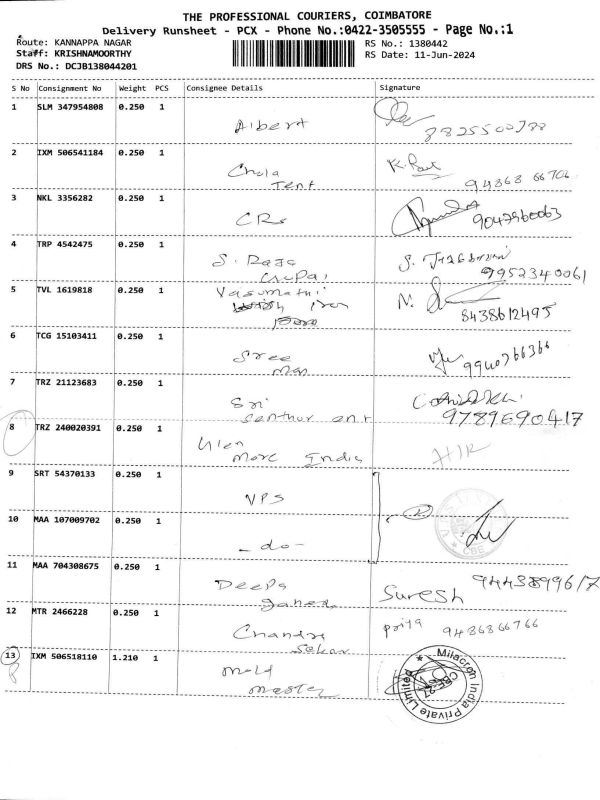 THE PROFESSIONAL COURIERS, COIMBATORE
Delivery Runsheet - PCX - Phone No.:0422-3505555 - Page No.:1
Route: KANNAPPA NAGAR RS No.: 1380442
Staff: KRISHNAMOORTHY RS Date: 11-Jun-2024
DRS No.: DCJB138044201
S No Consignment No Weight PCS Consignee Details Signature
1 SLM 347954808 0.250 1
Albert
2 IXM 506541184 0.250 1
Chola
Tent 94868 66706
3 NKL 3356282 0.250 1
4 TRP 4542475 0.250 1
S. Raja
9952340061
5 TVL 1619818 0.250 1
Vasumathi Iron
8438612495
6 TCG 15103411 0.250 1
Sree
7 TRZ 21123683 0.250 1
Sri
Senthur ent 9789690417
8 TRZ 240020391 0.250 1
More India
9 SRT 54370133 0.250 1
VPS
10 MAA 107009702 0.250 1
- do - CBE
11 MAA 704308675 0.250 1
Deepa Suresh
12 MTR 2466228 0.250 1
Chandra Priya 9486866766
Sekar
13 IXM 506518110 1.210 1
Mold
Master
Milacron India Private Limited